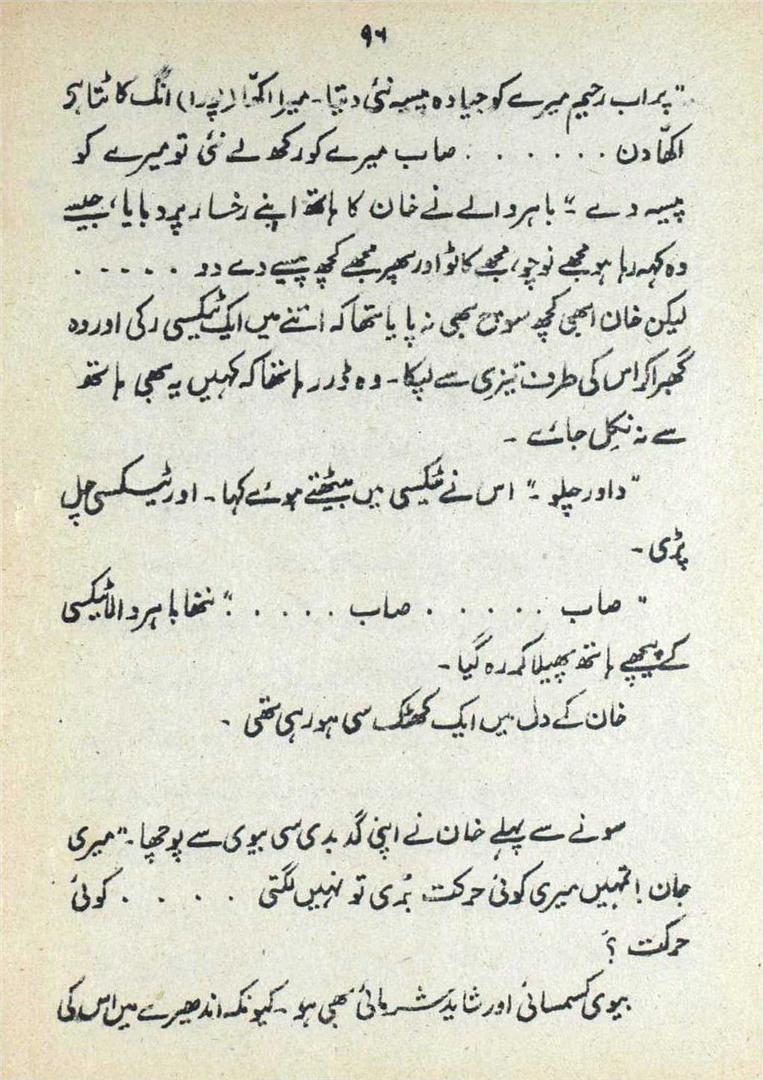 ۹۶
"پر اب رحیم میرے کو جیادہ پیسہ نئی دیتا۔ میرا اکھّا (پورا) انگ کاٹتا ہی
اکھّا دن . . . . . . صاب میرے کو رکھ لے نئ تو میرے کو
پیسہ دے ۔" باہر والے نے خان کا ہاتھ اپنے رخسار پر دبایا، جیسے
وہ کہہ رہا ہو مجھے نوچو، مجھے کاٹو اور پھر مجھے کچھ پیسے دے دو . . . . .
لیکن خان ابھی کچھ سوچ بھی نہ پایا تھا کہ اتنے میں ایک ٹیکسی رکی اور وہ
گھبرا کر اس کی طرف تیزی سے لپکا۔ وہ ڈر رہا تھا کہ کہیں یہ بھی ہاتھ
سے نہ نکل جائے ۔
"داور چلو ۔" اس نے ٹیکسی میں بیٹھتے ہوئے کہا۔ اور ٹیکسی چل
پڑی ۔
"صاب . . . . . صاب . . . . ." ننھا باہر والا ٹیکسی
کے پیچھے ہاتھ پھیلا کر رہ گیا۔
خان کے دل میں ایک کھٹک سی ہو رہی تھی ۔
سونے سے پہلے خان نے اپنی گدبدی سی بیوی سے پوچھا۔ "میری
جان ! تمہیں میری کوئی حرکت بُری تو نہیں لگتی . . . . کوئی
حرکت ؟
بیوی کسمسائی اور شاید شرمائی بھی ہو ۔ کیونکہ اندھیرے میں اس کی